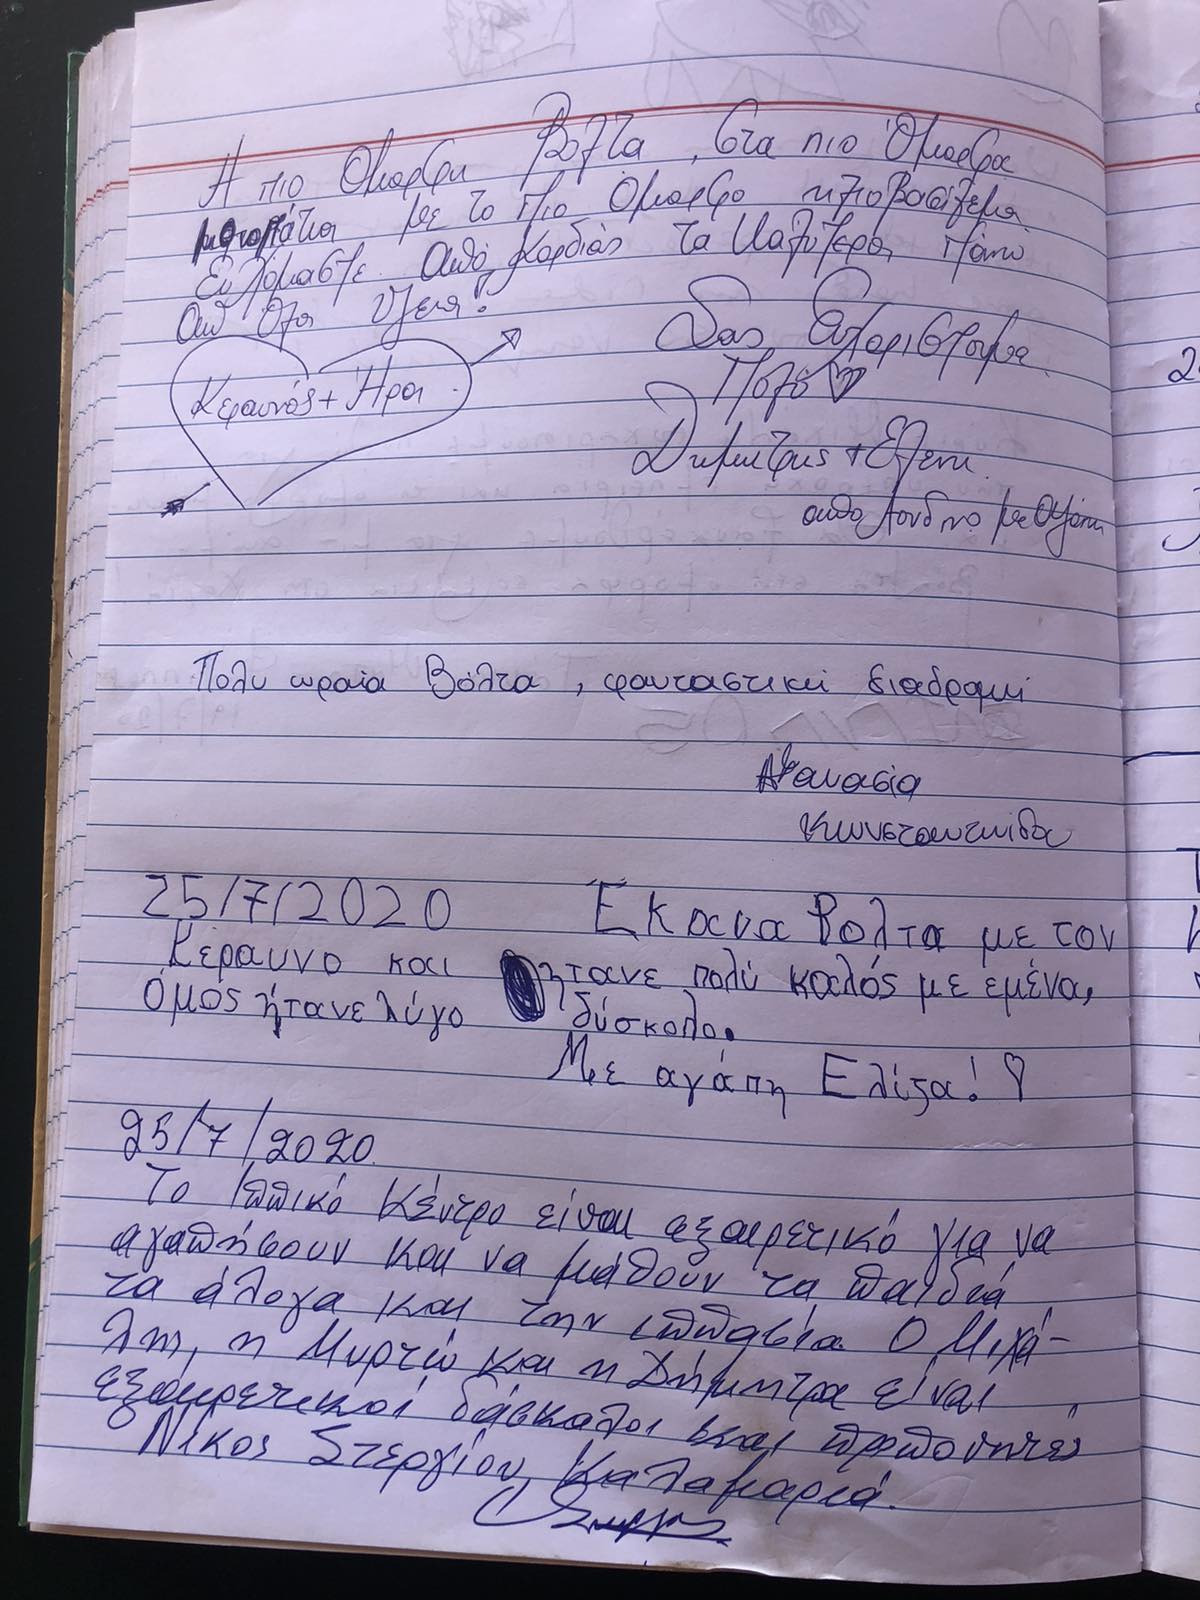 Η πιο Όμορφη Βόλτα, Στα πιο Όμορφα
μονοπάτια με το πιο Όμορφο ηλιοβασίλεμα
Ευχόμαστε Από Καρδιάς τα Καλύτερα πάνω
απ όλα Υγεια!
Κεραυνός + Ήρα
Σας Ευχαριστουμε
Πολύ
Δημητρης + Ελενη
απο Λονδινο με αγάπη
Πολυ ωραία βόλτα, φανταστική διαδρομή
Αθανασία
Κωνσταντινίδου
25/7/2020 Έκανα βόλτα με τον
Κεραυνο και ήτανε πολύ καλός με εμένα,
Όμος ήτανε λύγο δύσκολο.
Με αγάπη Ελίζα!
25/7/2020
Το Ιππικό Κέντρο είναι εξαιρετικό για να
αγαπήσουν και να μάθουν τα παιδιά
τα άλογα και την ιππασία. Ο Μιχά-
λης, η Μυρτώ και η Δήμητρα είναι
εξαιρετικοί δάσκαλοι και προπονητές
Νίκος Στεργίου, Καλαμαριά.